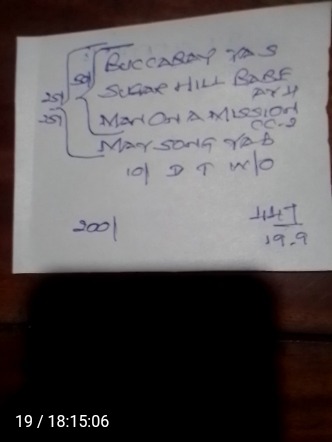 BUCCABAY YAS
SUGAR HILL BABE
AY4
MAN ON A MISSION
CC-2
MAY SONG YAB
50/
25/
25/
10/ D T W/O
200/
447
19.9
19 / 18:15:06